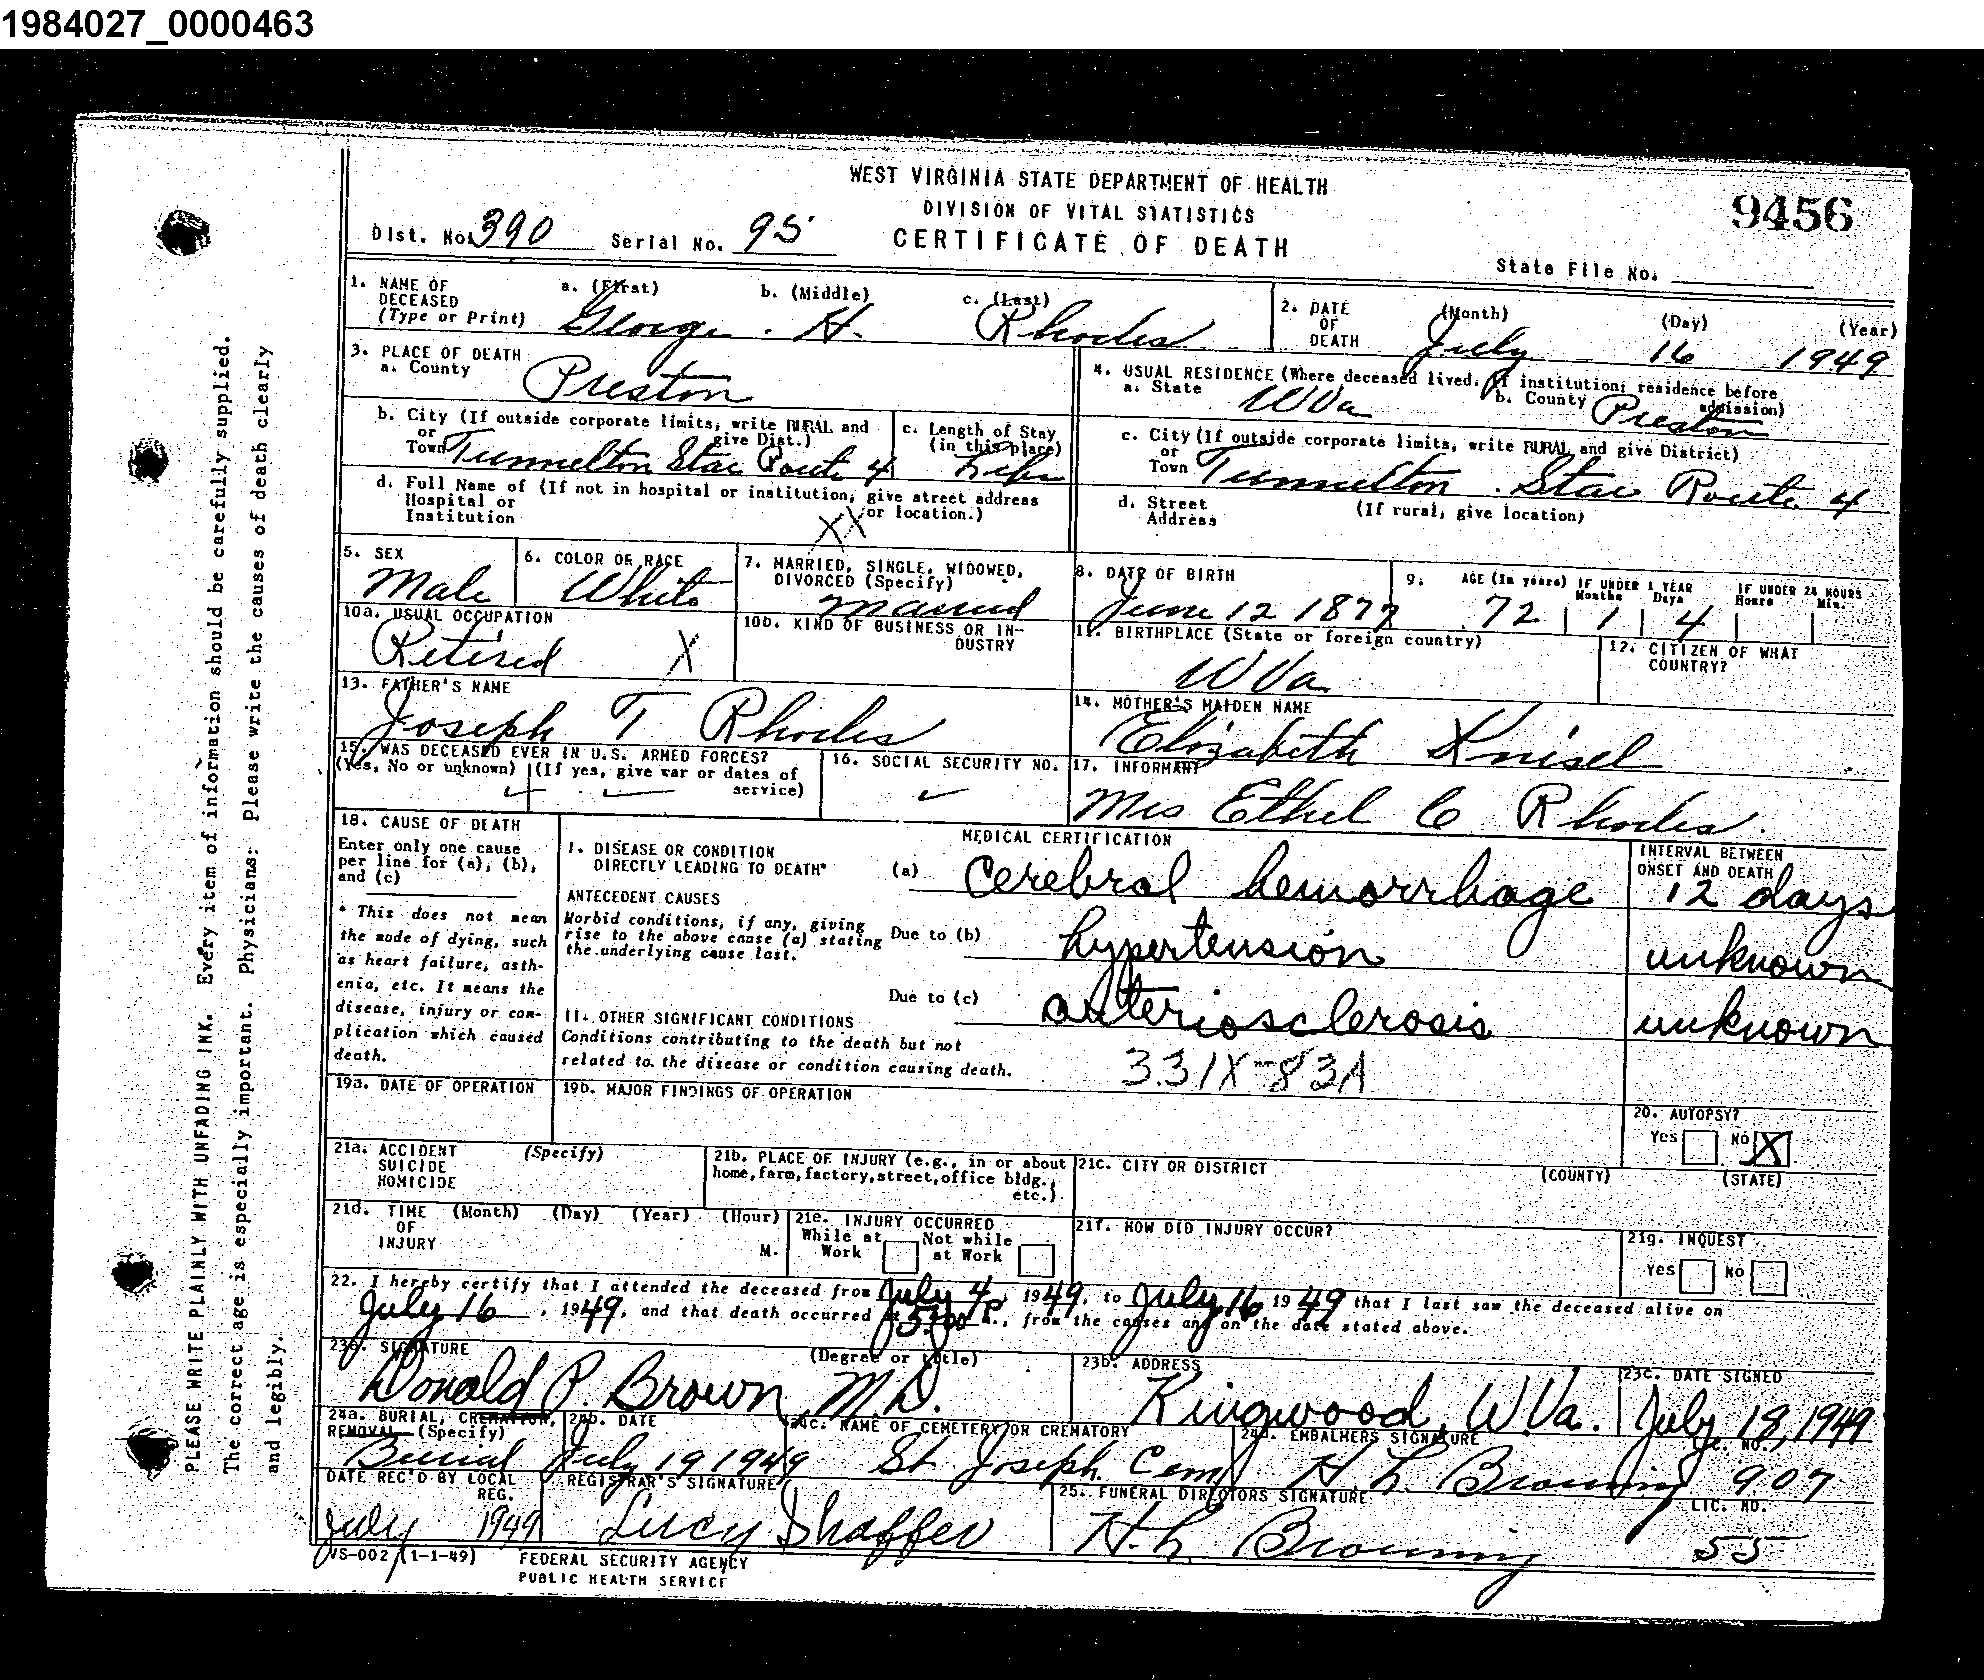 1984027_0000463
WEST VIRGINIA STATE DEPARTMENT OF HEALTH
DIVISION OF VITAL STATISTICS
CERTIFICATE OF DEATH
9456
Dist. No. 390 Serial No. 95
State File No.
1. NAME OF DECEASED (Type or Print) a. (First) George b. (Middle) H. c. (Last) Rhodes
2. DATE OF DEATH (Month) July (Day) 16 (Year) 1949
3. PLACE OF DEATH
a. County Preston
b. City (If outside corporate limits, write RURAL and give Dist.) or Town Tunnelton Star Route 4
c. Length of Stay (in this place) Life
d. Full Name of (If not in hospital or institution, give street address or location.) Hospital or Institution XX
4. USUAL RESIDENCE (Where deceased lived. If institution: residence before admission)
a. State WVa b. County Preston
c. City (If outside corporate limits, write RURAL and give District) or Town Tunnelton Star Route 4
d. Street Address (If rural, give location)
5. SEX Male
6. COLOR OR RACE White
7. MARRIED, SINGLE, WIDOWED, DIVORCED (Specify) Married
8. DATE OF BIRTH June 12 1877
9. AGE (In years) 72 IF UNDER 1 YEAR Months 1 Days 4 IF UNDER 24 HOURS Hours Min.
10a. USUAL OCCUPATION Retired X
10b. KIND OF BUSINESS OR INDUSTRY
11. BIRTHPLACE (State or foreign country) WVa
12. CITIZEN OF WHAT COUNTRY?
13. FATHER'S NAME Joseph T Rhodes
14. MOTHER'S MAIDEN NAME Elizabeth Knisel
15. WAS DECEASED EVER IN U.S. ARMED FORCES?
(Yes, No or unknown) (If yes, give war or dates of service)
16. SOCIAL SECURITY NO.
17. INFORMANT Mrs Ethel C Rhodes
18. CAUSE OF DEATH
Enter only one cause per line for (a), (b), and (c)
* This does not mean the mode of dying, such as heart failure, asthenia, etc. It means the disease, injury or complication which caused death.
MEDICAL CERTIFICATION
INTERVAL BETWEEN ONSET AND DEATH
I. DISEASE OR CONDITION DIRECTLY LEADING TO DEATH* (a) Cerebral hemorrhage 12 days
ANTECEDENT CAUSES
Morbid conditions, if any, giving rise to the above cause (a) stating the underlying cause last.
Due to (b) hypertension unknown
Due to (c) arteriosclerosis unknown
II. OTHER SIGNIFICANT CONDITIONS
Conditions contributing to the death but not related to the disease or condition causing death.
331X-83A
19a. DATE OF OPERATION
19b. MAJOR FINDINGS OF OPERATION
20. AUTOPSY? Yes No X
21a. ACCIDENT SUICIDE HOMICIDE (Specify)
21b. PLACE OF INJURY (e.g., in or about home, farm, factory, street, office bldg., etc.)
21c. CITY OR DISTRICT (COUNTY) (STATE)
21d. TIME OF INJURY (Month) (Day) (Year) (Hour) M.
21e. INJURY OCCURRED While at Work Not while at Work
21f. HOW DID INJURY OCCUR?
21g. INQUEST Yes No
22. I hereby certify that I attended the deceased from July 4, 1949, to July 16 1949 that I last saw the deceased alive on
July 16, 1949, and that death occurred at 5:00 P., from the causes and on the date stated above.
23a. SIGNATURE (Degree or title) Donald P. Brown, M.D.
23b. ADDRESS Kingwood, W.Va.
23c. DATE SIGNED July 18, 1949
24a. BURIAL, CREMATION, REMOVAL (Specify) Burial
24b. DATE July 19 1949
24c. NAME OF CEMETERY OR CREMATORY St. Joseph Cem
24d. EMBALMERS SIGNATURE H. L. Browning LIC. NO. 907
DATE REC'D BY LOCAL REG. July 1949
REGISTRAR'S SIGNATURE Lucy Shaffer
25. FUNERAL DIRECTORS SIGNATURE H. L. Browning LIC. NO. 55
VS-002 (1-1-49)
FEDERAL SECURITY AGENCY
PUBLIC HEALTH SERVICE
PLEASE WRITE PLAINLY WITH UNFADING INK. Every item of information should be carefully supplied.
The correct age is especially important. Physicians: Please write the causes of death clearly
and legibly.